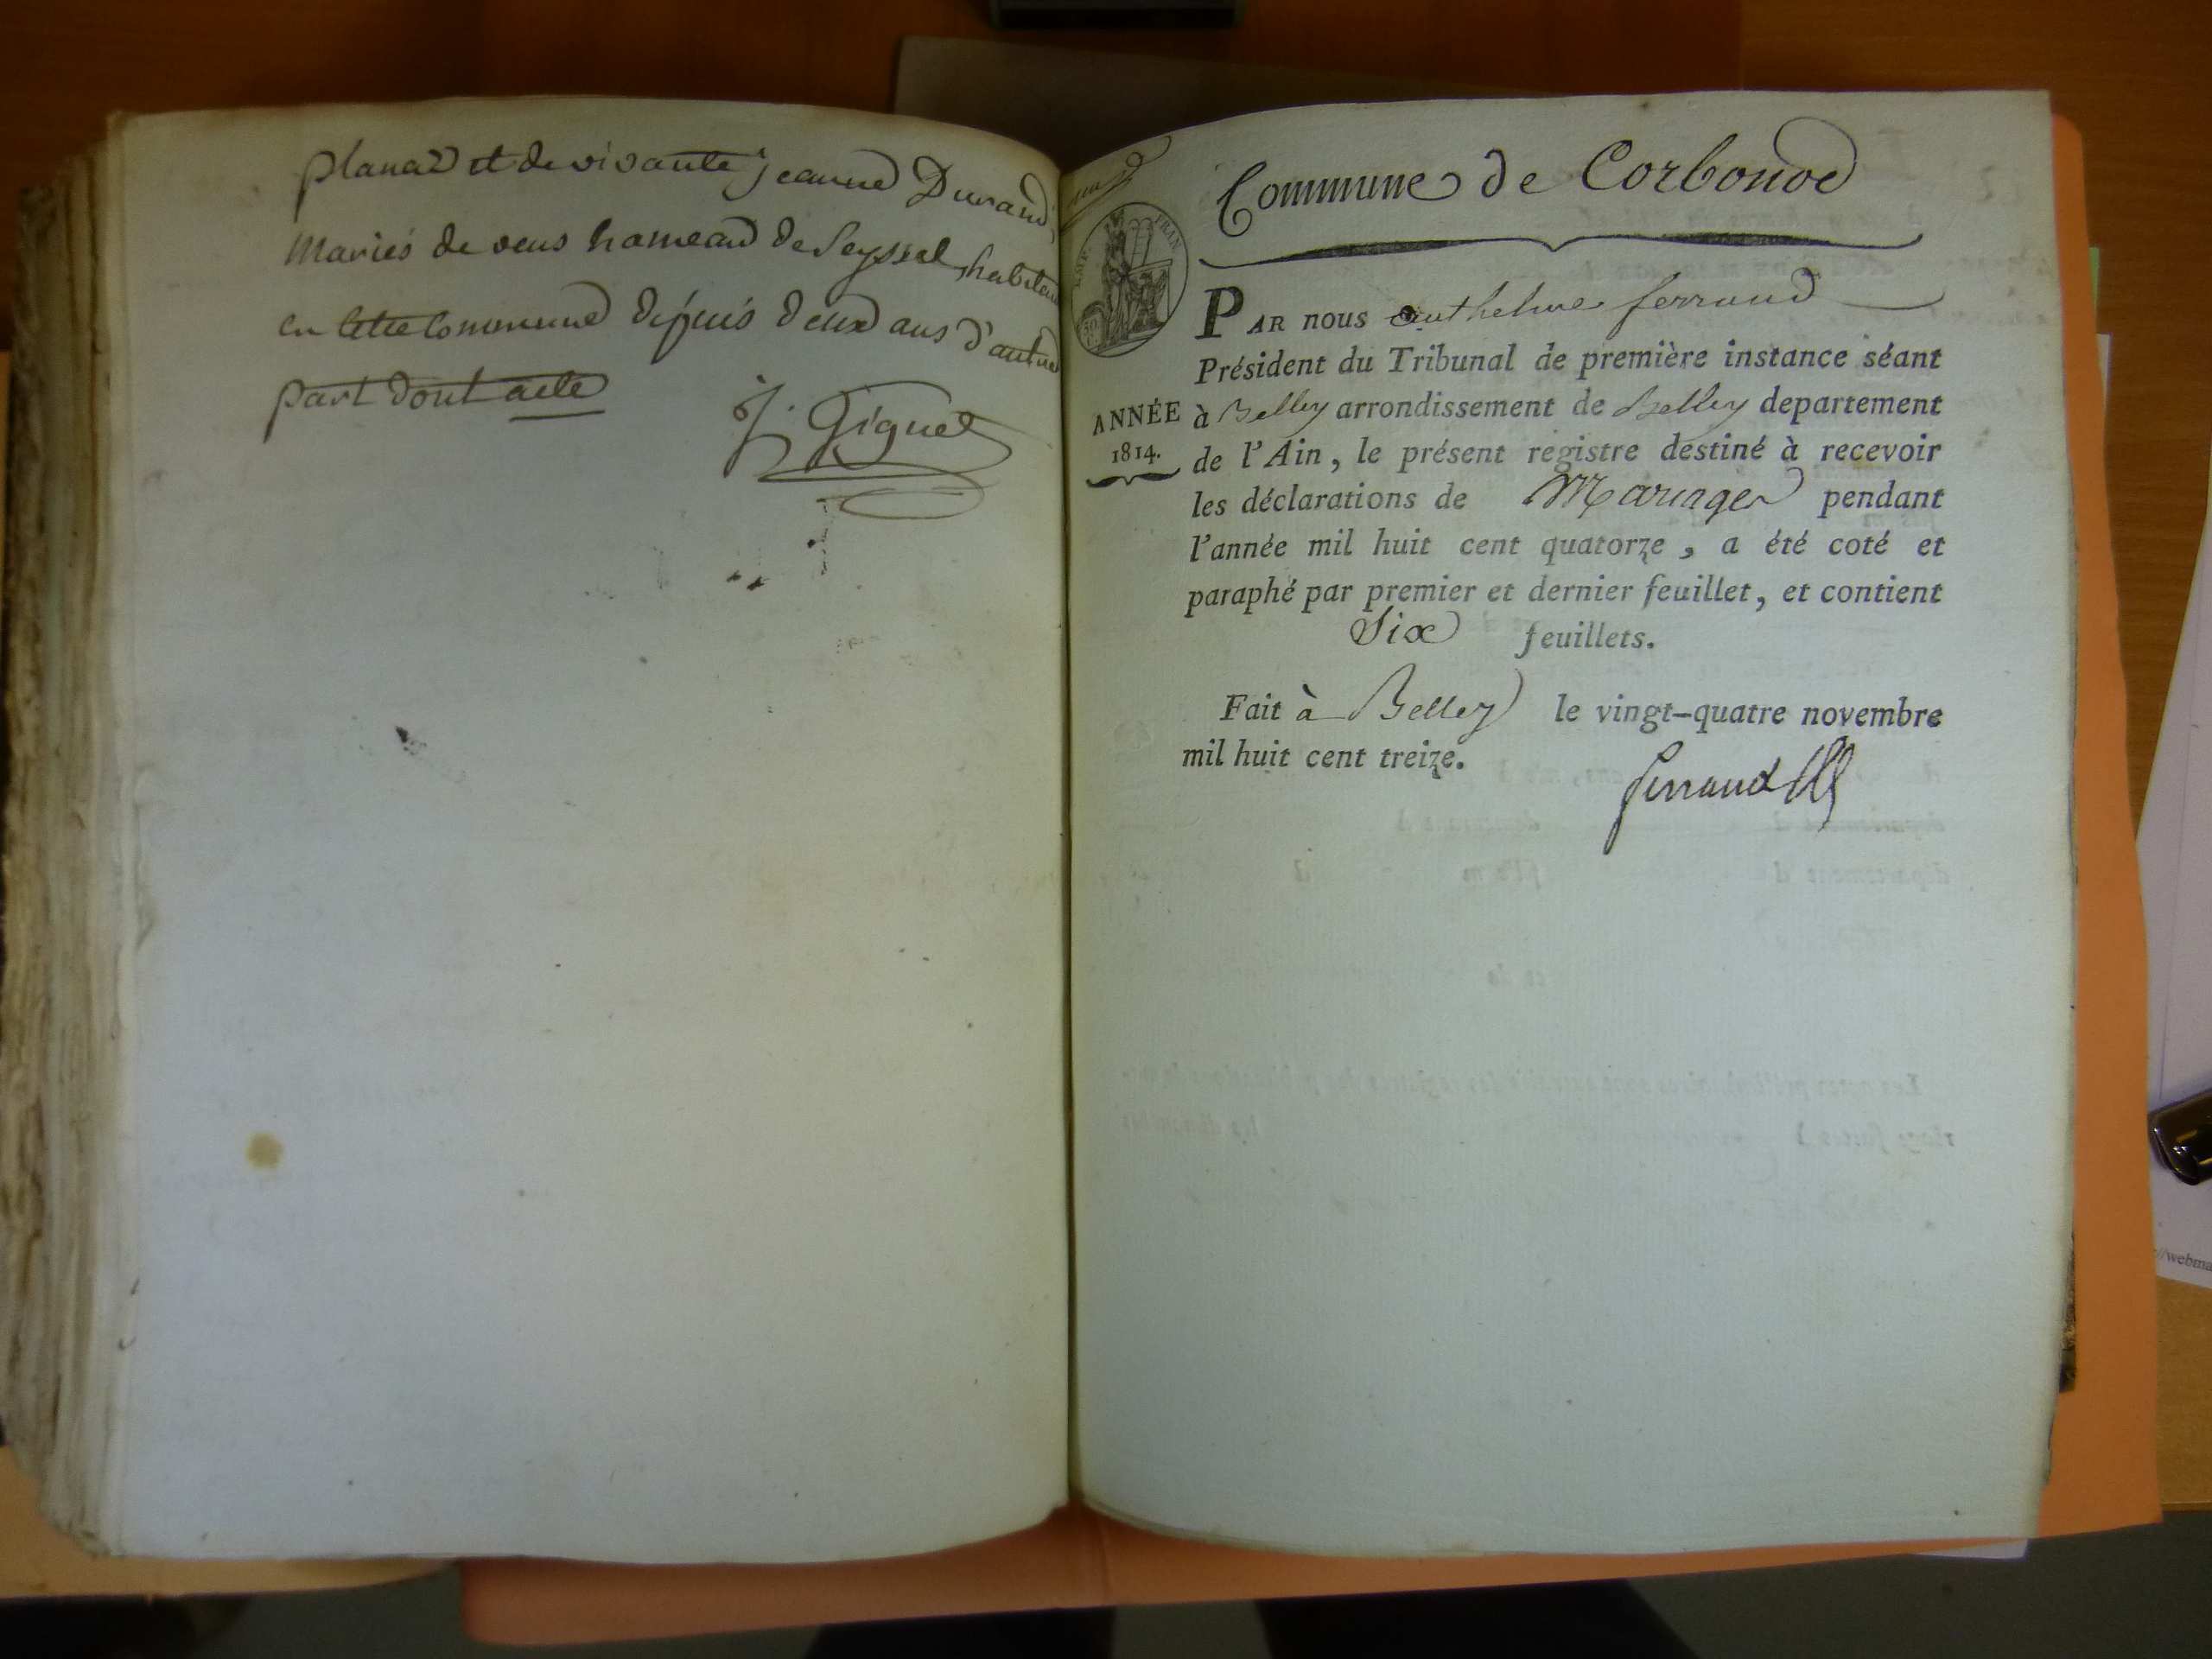 planaz et de vivante jeanne Durand,
Mariés de vens hameau de Seyssel, habitan
en cette Commune depuis deux ans d'autre
part dont acte
J. Giguet
Commune de Corbonod
EMP. FRAN
50
PAR nous anthelme ferrand
Président du Tribunal de première instance séant
ANNÉE
1814.
à Belley arrondissement de Belley departement
de l'Ain, le présent registre destiné à recevoir
les déclarations de Mariages pendant
l'année mil huit cent quatorze, a été coté et
paraphé par premier et dernier feuillet, et contient
Six feuillets.
Fait à Belley le vingt-quatre novembre
mil huit cent treize.
ferrand
://webma